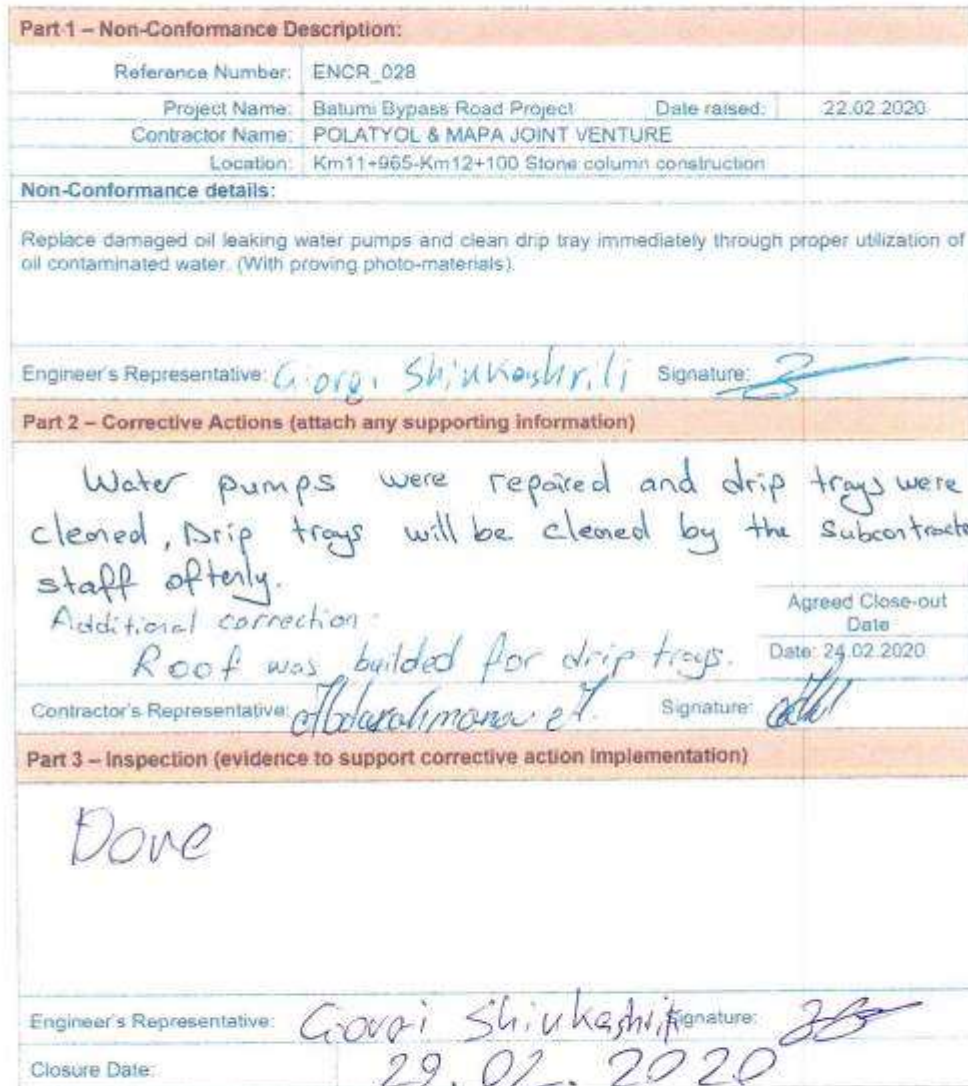 Part 1 – Non-Conformance Description:
Reference Number: ENCR_028
Project Name: Batumi Bypass Road Project Date raised: 22.02.2020
Contractor Name: POLATYOL & MAPA JOINT VENTURE
Location: Km11+965-Km12+100 Stone column construction
Non-Conformance details:
Replace damaged oil leaking water pumps and clean drip tray immediately through proper utilization of
oil contaminated water. (With proving photo-materials).
Engineer's Representative: Giorgi Signature:
Part 2 – Corrective Actions (attach any supporting information)
Water pumps were repaired and drip trays were
cleaned, Drip trays will be cleaned by the Subcontracto
staff oftenly.
Additional correction:
Agreed Close-out
Date
Roof was builded for drip trays. Date: 24.02.2020
Contractor's Representative: Signature:
Part 3 – Inspection (evidence to support corrective action implementation)
Done
Engineer's Representative: Signature:
Closure Date: 29.02.2020